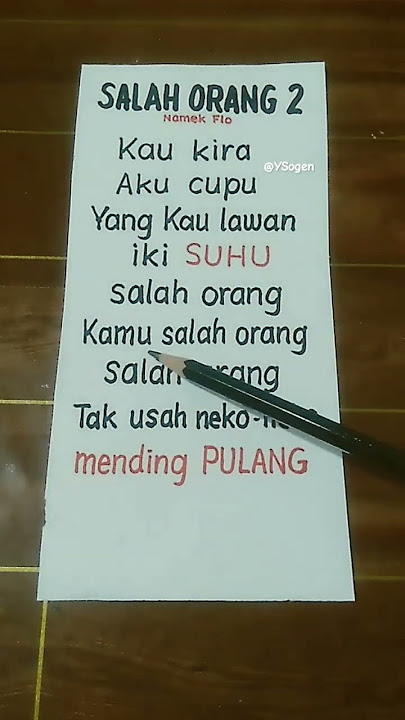 SALAH ORANG 2
Namek Flo
Kau kira
@YSogen
Aku cupu
Yang Kau lawan
iki SUHU
salah orang
Kamu salah orang
Salah orang
Tak usah neko-
mending PULANG